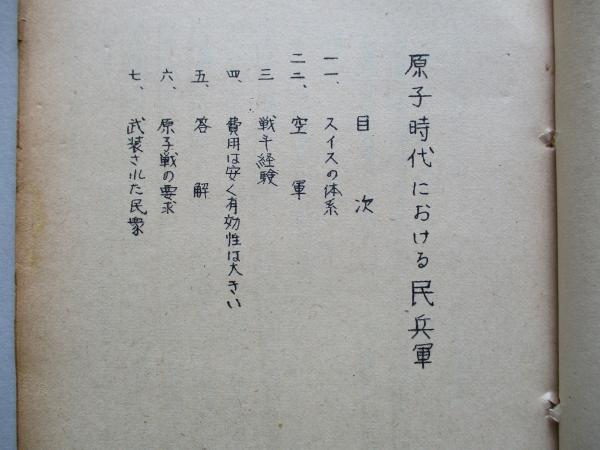 原子時代における民兵軍
目次
一一、スイスの体系
二二、空軍
三 戦斗経験
四、費用は安く有効性は大きい
五、答解
六、原子戦の要求
七、武装された民衆